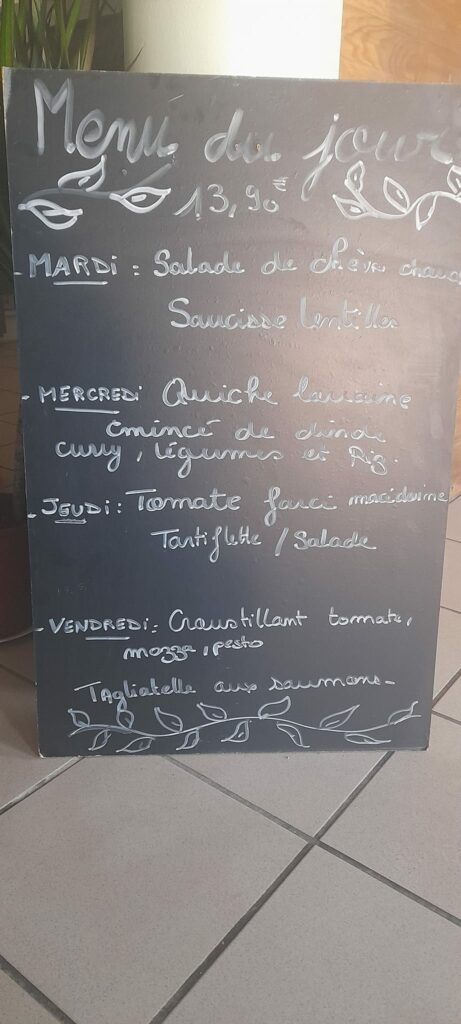 Menu du jour
13,90€
- MARDI : Salade de chèvre chaud
Saucisse lentilles
- MERCREDI Quiche lorraine
émincé de dinde
curry, légumes et Riz.
- JEUDI : Tomate farci macédoine
Tartiflette / Salade
- VENDREDI : Croustillant tomate,
mozza, pesto
Tagliatelle aux saumons-